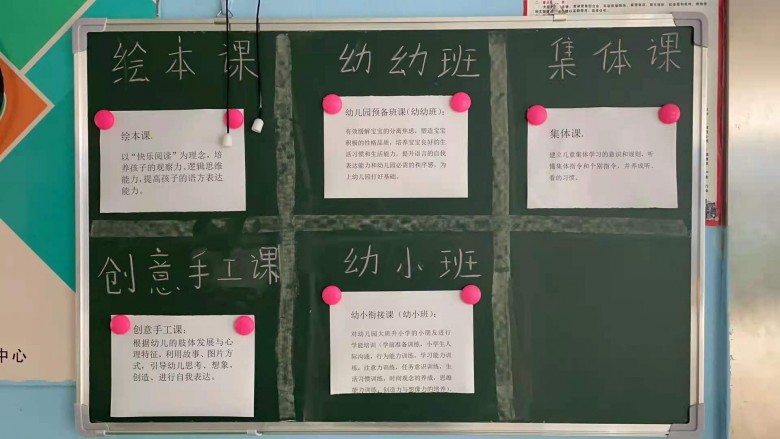 绘本课
幼幼班
集体课
绘本课.
以“快乐阅读”为理念，培
养孩子的观察力、逻辑思维
能力，提高孩子的语方表达
能力。
幼儿园预备班课（幼幼班）：
有效缓解宝宝的分离焦虑，塑造宝宝
积极的性格品质，培养宝宝良好的生
活习惯和生活能力，提升语言的自我
表达能力和幼儿园必需的秩序感，为
上幼儿园打好基础。
集体课：
建立儿童集体学习的意识和规则，听
懂集体指令和个别指令，并养成听、
看的习惯。
创意手工课
幼小班
创意手工课：
根据幼儿的肢体发展与心
理特征，利用故事、图片方
式，引导幼儿思考、想象、
创造、进行自我表达。
幼小衔接课（幼小班）：
对幼儿园大班升小学的小朋友进行
学能培训（学前准备训练，小学生人
际沟通，行为能力训练，学习能力训
练，注意力训练，任务意识训练，生
活习惯训练，时间观念的养成，思维
能力训练，创造力与想像力的培养）。
中心